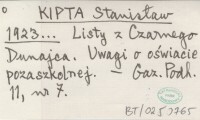 KIPTA Stanisław
1923... Listy z Czarnego
Dunajca. Uwagi o oświacie
pozaszkolnej. – Gaz. Podh.
11, nr 7.
BT/0250765